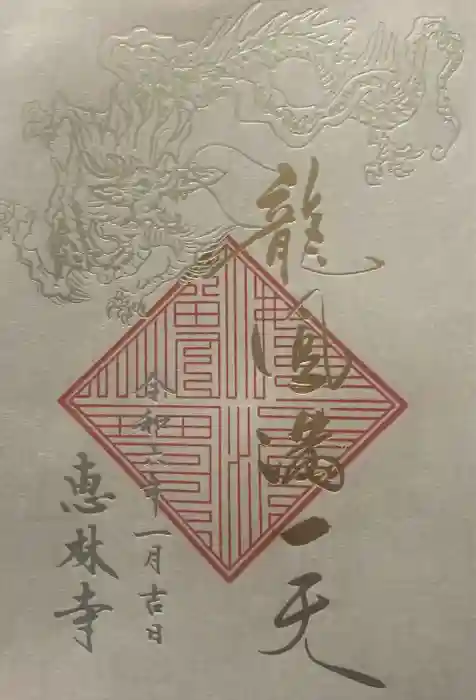 龍凰満一天
令和六年一月吉日
恵林寺